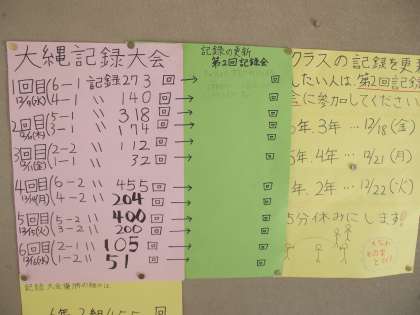 大縄記録大会
1回目 6-1 記録273回
12/9(水) 4-1 〃 140回
2回目 5-1 〃 318回
3-1 〃 174回
3回目 2-2 〃 112回
1-1 〃 32回
4回目 6-2 〃 455回
12/14(月) 4-2 〃 204回
5回目 5-2 〃 400回
12/15(火) 3-2 〃 200回
6回目 2-1 〃 105回
12/16(水) 1-2 〃 51回
記録の更新
第2回記録会
回
回
回
回
回
回
回
回
回
回
回
回
クラスの記録を更新
したい人は、第2回記録
会に参加してください
年、3年…12/18(金)
年、4年…12/21(月)
年、2年…12/22(火)
5分休みにします!
記録大会優勝の組は
6年2組455回